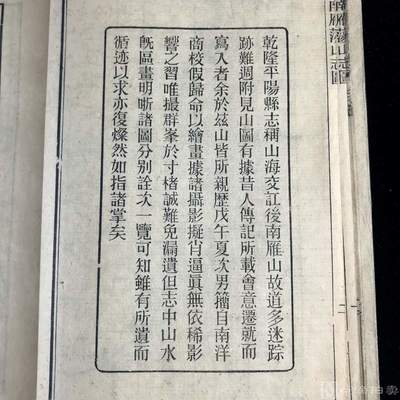 乾隆平陽縣志稱山海交訌後南雁山故道多迷踪
跡難週附見山圖有據昔人傳記所載會意遷就而
寫入者余於茲山皆所親歷戊午夏次男籀自南洋
商校假歸命以繪畫據諸攝影擬肖逼眞無依稀影
響之習唯撮群峯於寸楮誠難免漏遺但志中山水
旣區畫明晰諸圖分别詮次一覽可知雖有所遺而
循迹以求亦復燦然如指諸掌矣
南雁蕩山志圖